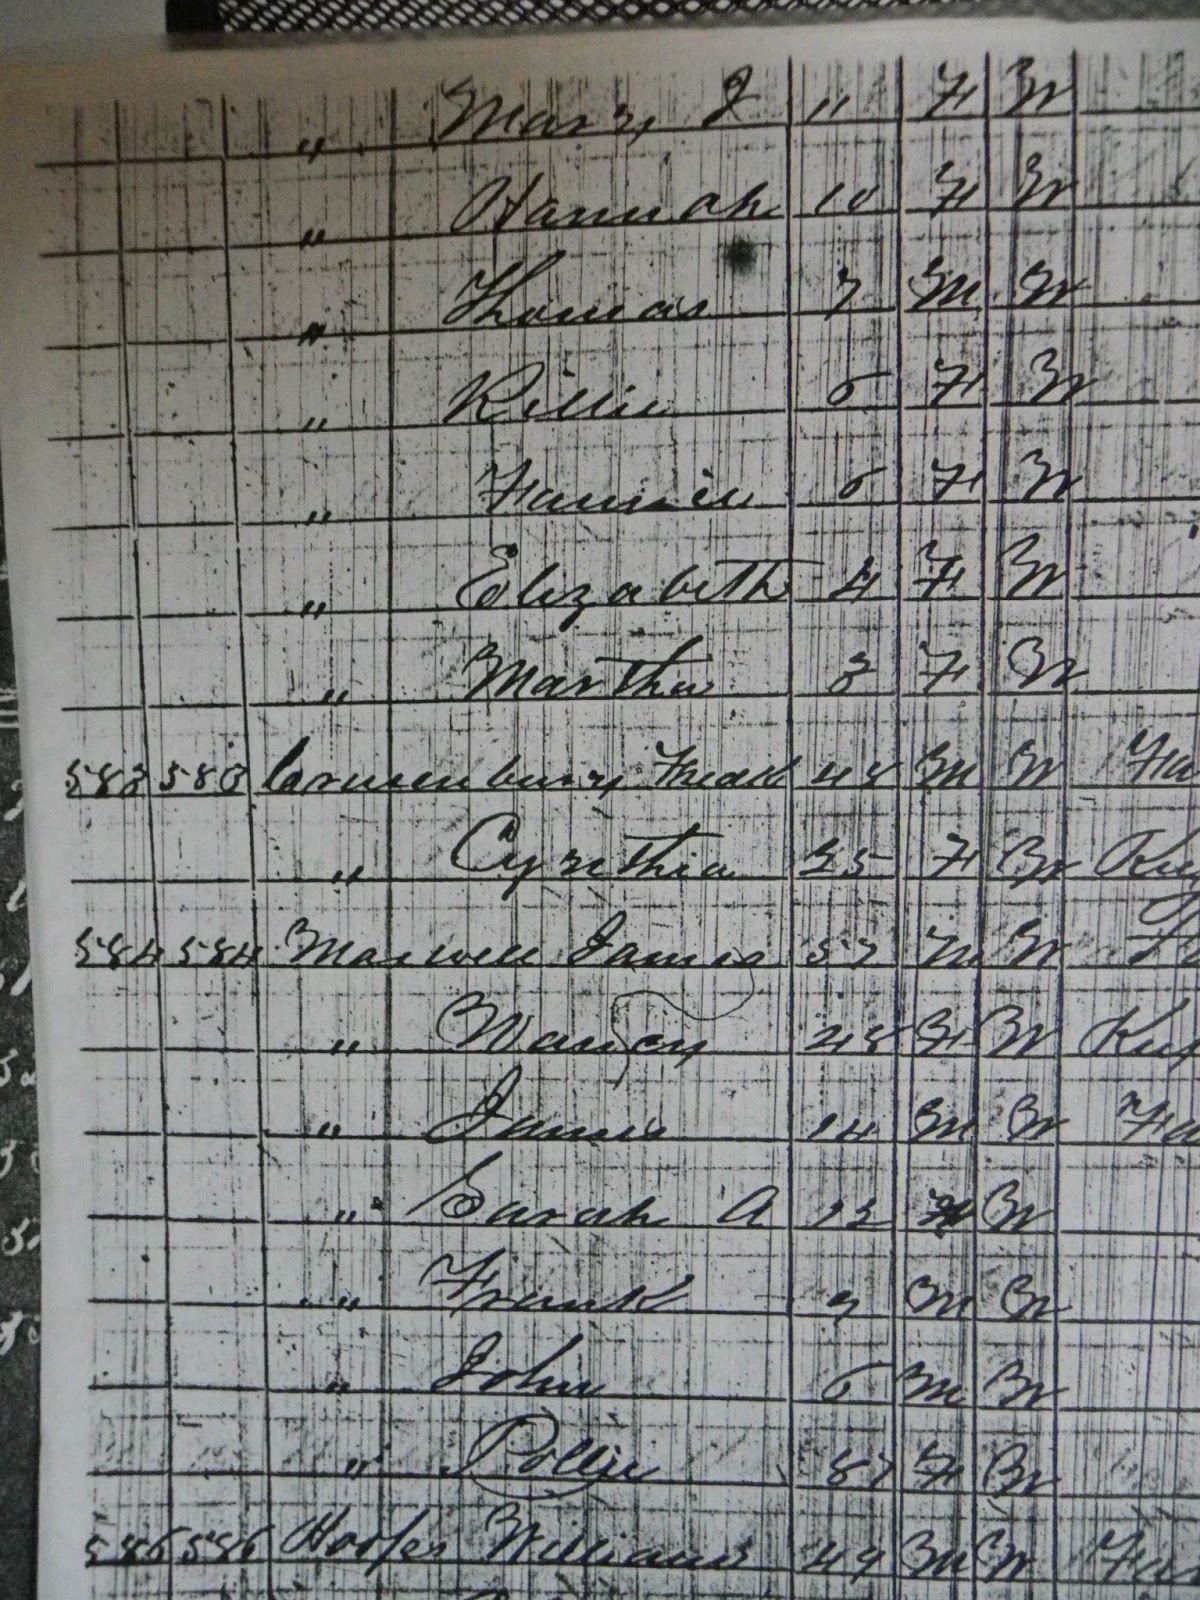 " Mary J 11 F W
" Hannah 10 F W
" Thomas 7 M W
" Killie 6 F W
" Fannie 6 F W
" Elizabeth 4 F W
" Martha 3 F W
583 583 48 M W Fa
" Cynthia 35 F W Kee
584 584 Maxwell James 57 M W Fa
" Nancy 48 F W Kee
" James 14 M W Fa
" Sarah A 13 F W
" Frank 9 M W
" John 6 M W
" Pollie 87 F W
586 586 Hooper William 49 M W Fa